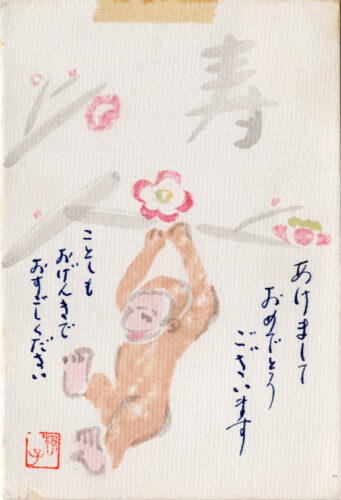 寿
あけまして
おめでとう
ございます
ことしも
おげんきで
おすごしください